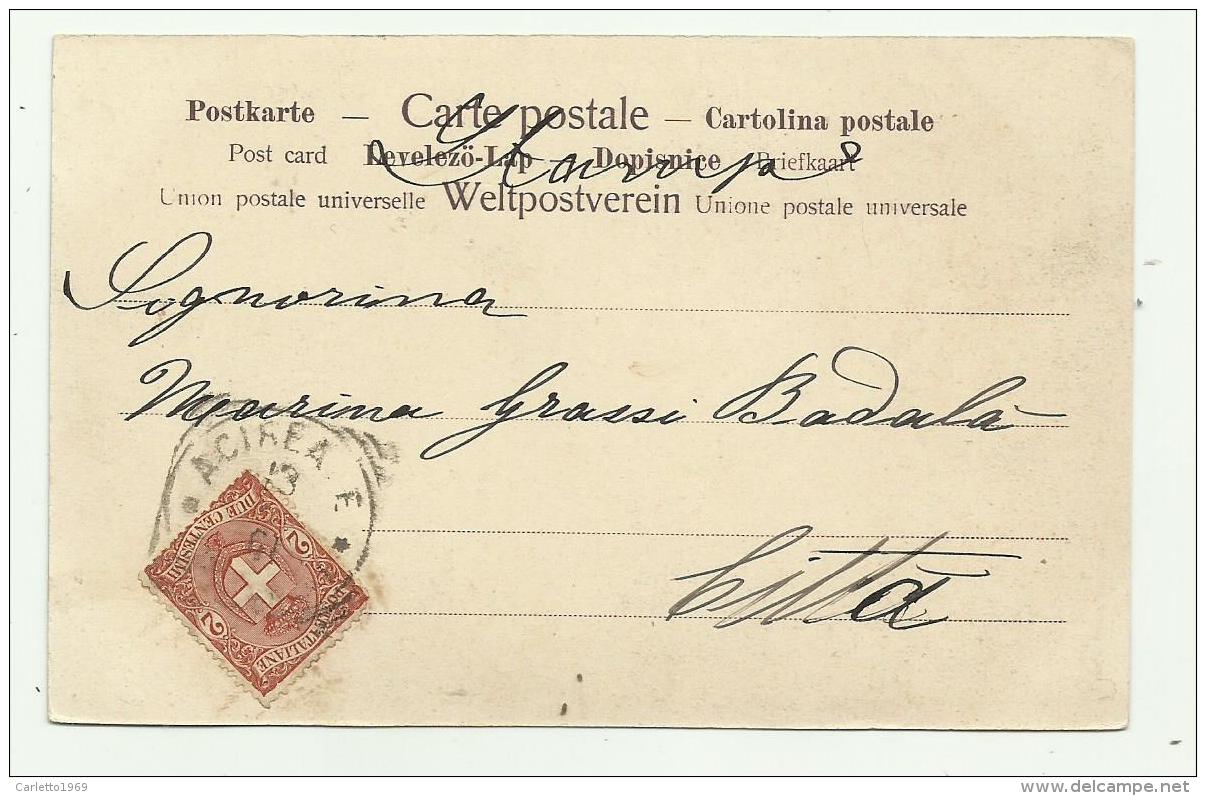 Postkarte — Carte postale — Cartolina postale
Post card Levelezö-Lap — Dopisnice Briefkaart
Stampe
Union postale universelle Weltpostverein Unione postale universale
Signorina
Marina Grassi Badalà
Città
ACIREALE
13
DUE CENTESIMI
2
2
POSTE ITALIANE
Carletto1969
www.delcampe.net